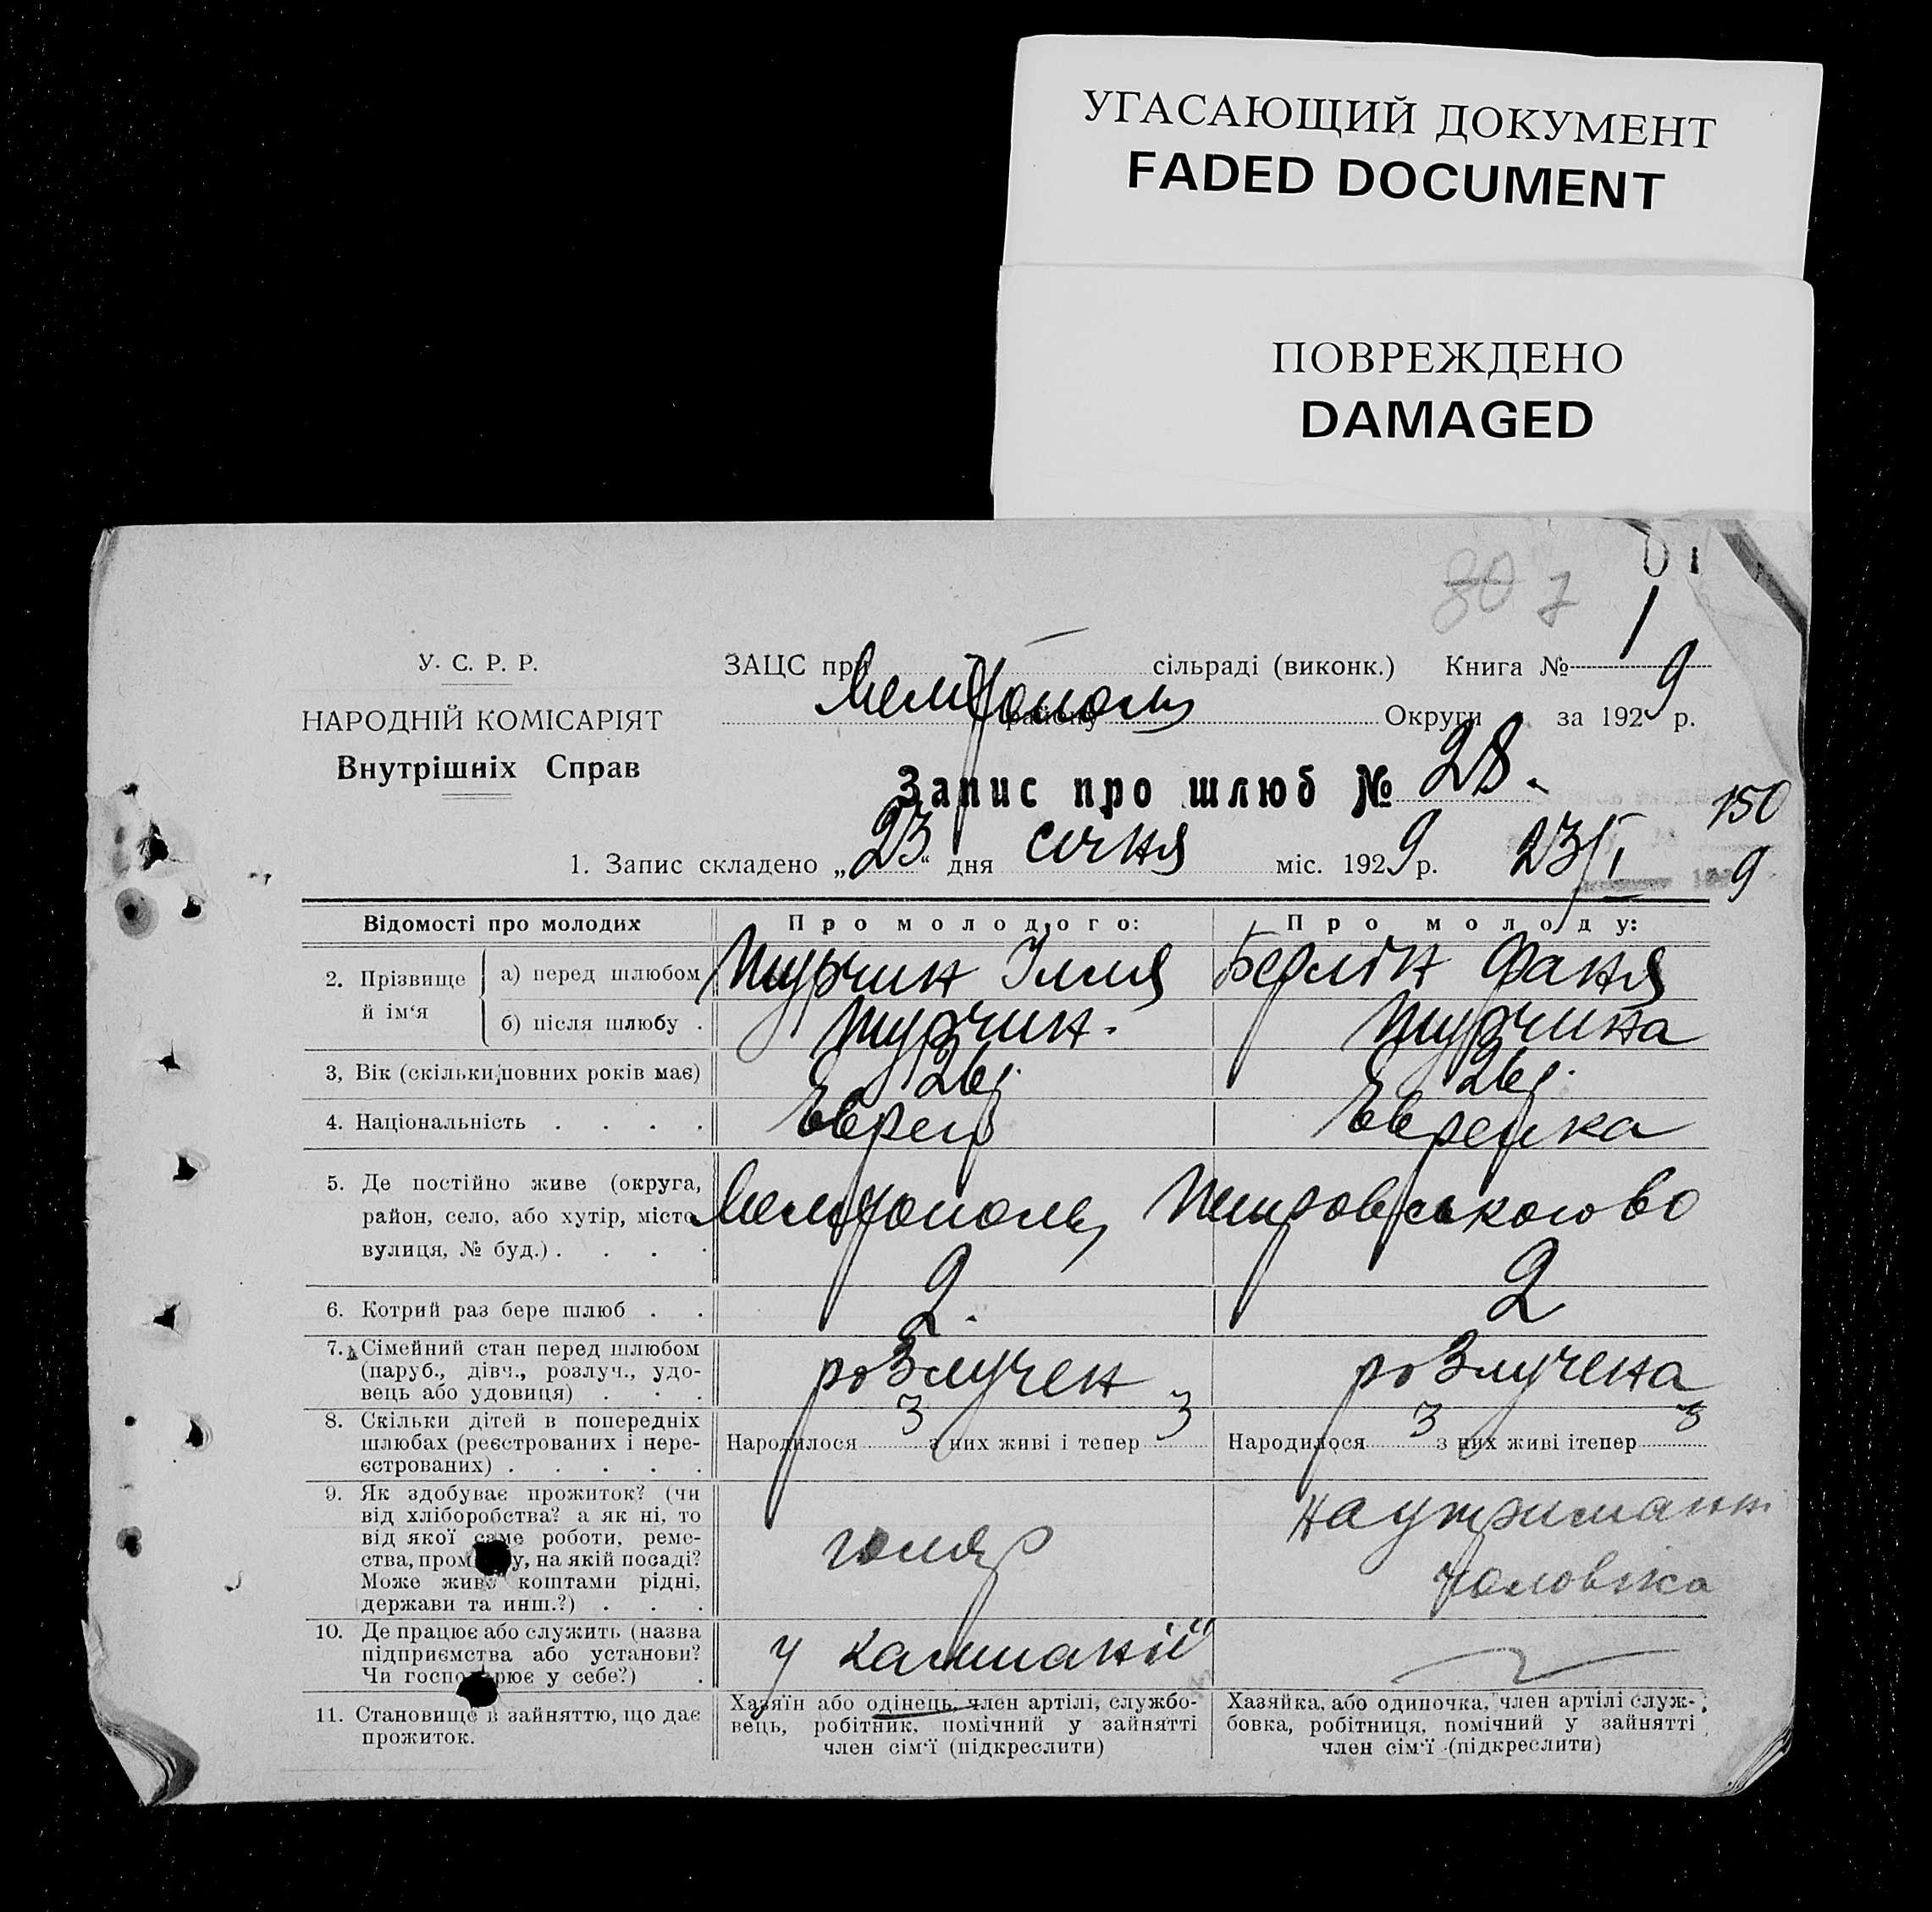 УГАСАЮЩИЙ ДОКУМЕНТ
FADED DOCUMENT
ПОВРЕЖДЕНО
DAMAGED
У. С. Р. Р.
НАРОДНІЙ КОМІСАРІЯТ
Внутрішніх Справ
ЗАЦС при сільраді (виконк.) Книга № 1
Мелітополь району Округи за 1929 р.
Запис про шлюб № 28.
150
1. Запис складено „23“ дня січня міс. 1929 р. 23/I 9
Відомості про молодих
Про молодого:
Про молоду:
2. Прізвище й ім‘я
а) перед шлюбом
Турчин Ілля
Берлін Фаня
б) після шлюбу .
Турчин.
Турчина
3, Вік (скільки повних років має)
26р.
26р.
4. Національність . . . .
Еврей
Еврейка
5. Де постійно живе (округа,
район, село, або хутір, місто,
вулиця, № буд.) . . . .
Мелітополь,
6. Котрий раз бере шлюб . .
2.
2
7. Сімейний стан перед шлюбом
(паруб., дівч., розлуч., удо-
вець або удовиця) . . .
розлучен
розлучена
8. Скільки дітей в попередніх
шлюбах (реєстрованих і нере-
єстрованих) . . . . .
Народилося 3 з них живі і тепер 3
Народилося 3 з них живі ітепер 3
9. Як здобуває прожиток? (чи
від хліборобства? а як ні, то
від якої саме роботи, реме-
ства, промислу, на якій посаді?
Може живе коштами рідні,
держави та инш.?) . . .
голяр
на утриманні
чоловіка
10. Де працює або служить (назва
підприємства або установи?
Чи господарює у себе?) .
у компанії
11. Становище в зайняттю, що дає
прожиток.
Хазяїн або одінець, член артілі, службо-
вець, робітник, помічний у зайнятті
член сім‘ї (підкреслити)
Хазяйка, або одиночка, член артілі служ-
бовка, робітниця, помічний у зайнятті
член сім‘ї (підкреслити)